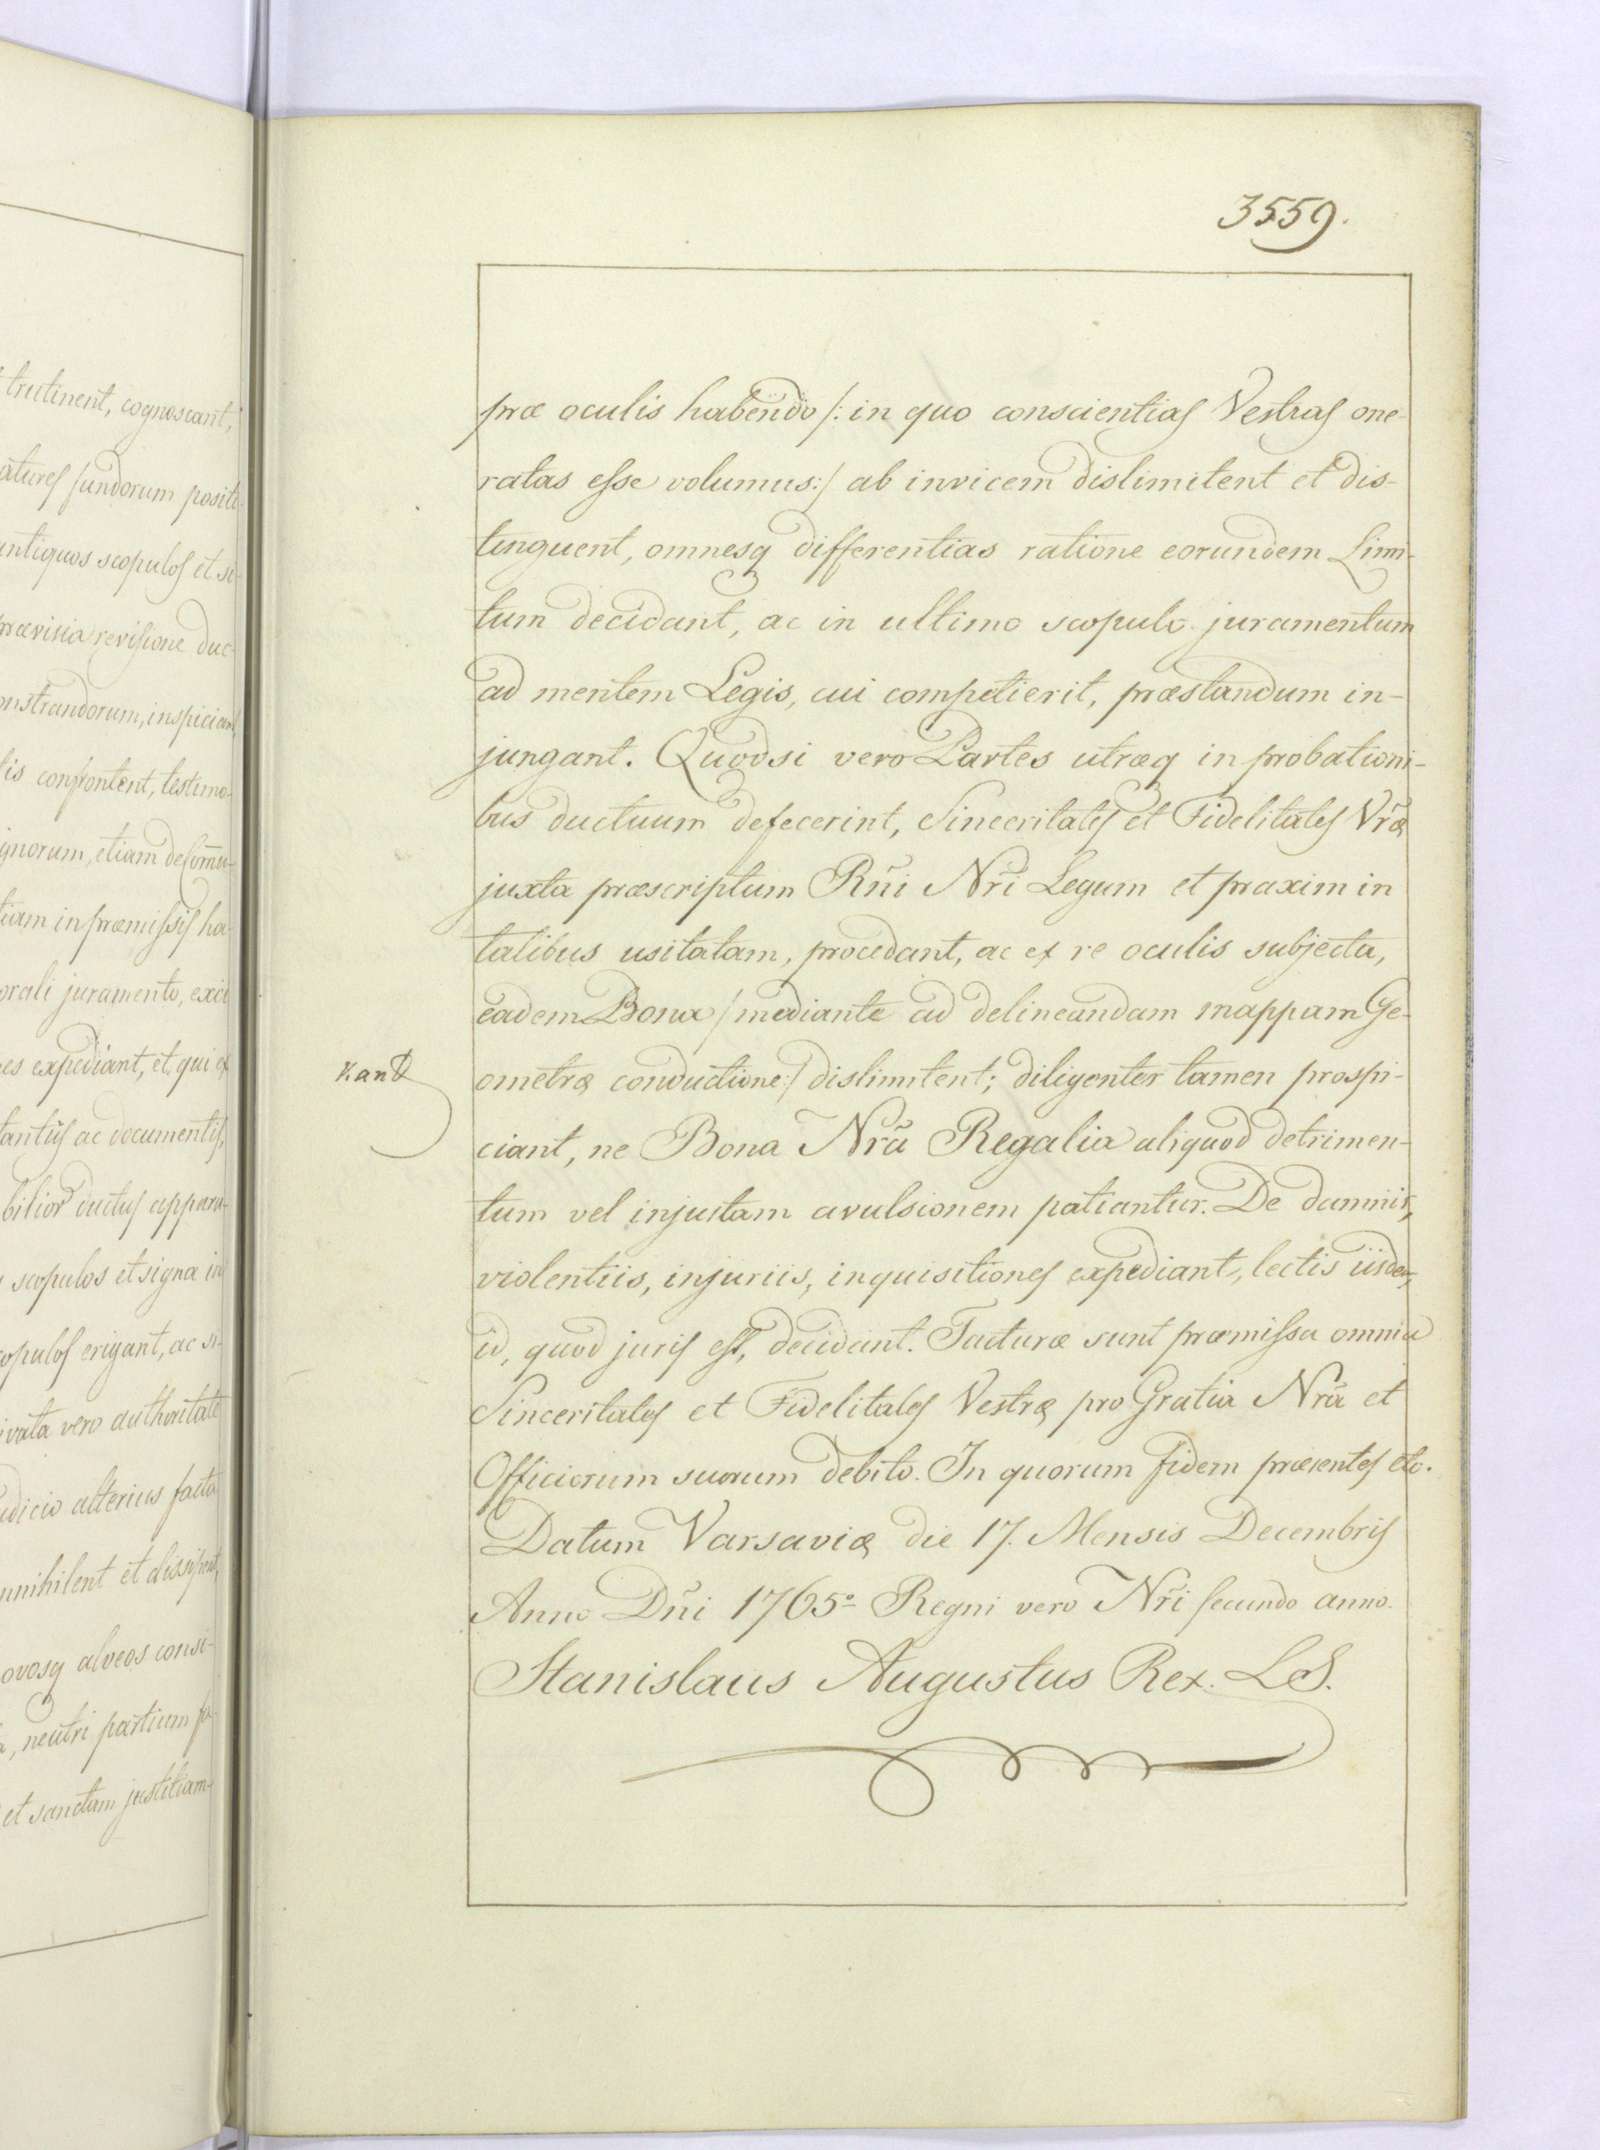 trutinent, cognoscant,
fundorum positi
antiquos scopulos et si-
prævisia revisione duc-
onstrandorum, inspiciant
confrontent, testimo-
ignorum, etiam de Com̃u-
in præmissis ha-
juramento, exci
expediant, et qui ex
ac documentis,
bilior ductus appare-
scopulos et signa in
scopulos erigant, ac si-
vero authoritate
alterius facta
annihilent et dissipent,
alveos consi-
neutri partium fa-
et sanctam justitiam
3559.
præ oculis habendo /: in quo conscientias Vestras one-
ratas esse volumus:/ ab invicem dislimitent et dis-
tinguent, omnesq differentias ratione eorundem Limi-
tum decidant, ac in ultimo scopulo juramentum
ad mentem Legis, cui competierit, præstandum in-
jungant. Quodsi vero Partes utræq in probationi-
bus ductuum defecerint, Sinceritates et Fidelitates Vr̃æ
juxta præscriptum Rñi Nr̃i Legum et praxim in
talibus usitatam, procedant, ac ex re oculis subjecta,
eadem Bona / mediante ad delineandam mappam Ge-
ometræ conductione:/ dislimitent; diligenter tamen prospi-
ciant, ne Bona Nr̃a Regalia aliquod detrimen-
tum vel injustam avulsionem patiantur. De damnis,
violentiis, injuriis, inquisitiones expediant, lectis iisdem,
id, quod juris est, decidant. Facturæ sunt præmissa omnia
Sinceritates et Fidelitates Vestræ pro Gratia Nr̃a et
Officiorum suorum debito. In quorum fidem præsentes etc.
Datum Varsaviæ die 17. Mensis Decembris
Anno Dñi 1765º Regni vero Nr̃i secundo anno.
Stanislaus Augustus Rex. LS.